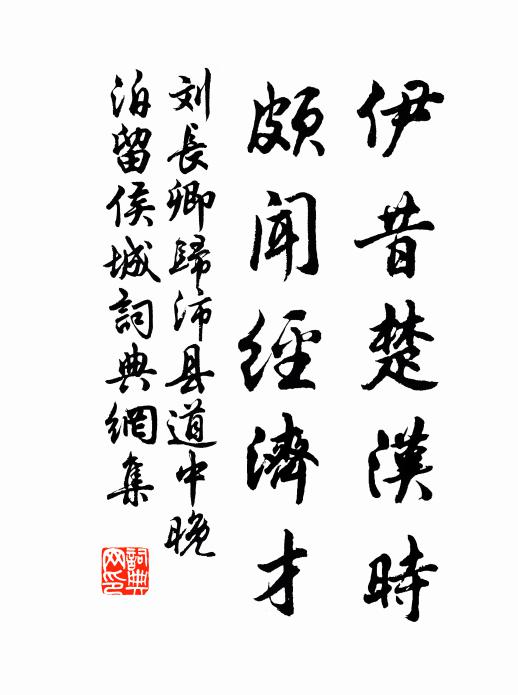 伊昔楚漢時
頗聞經濟才
刘長卿歸沛县道中晚
泊留侯城詞典網集
詞典网印